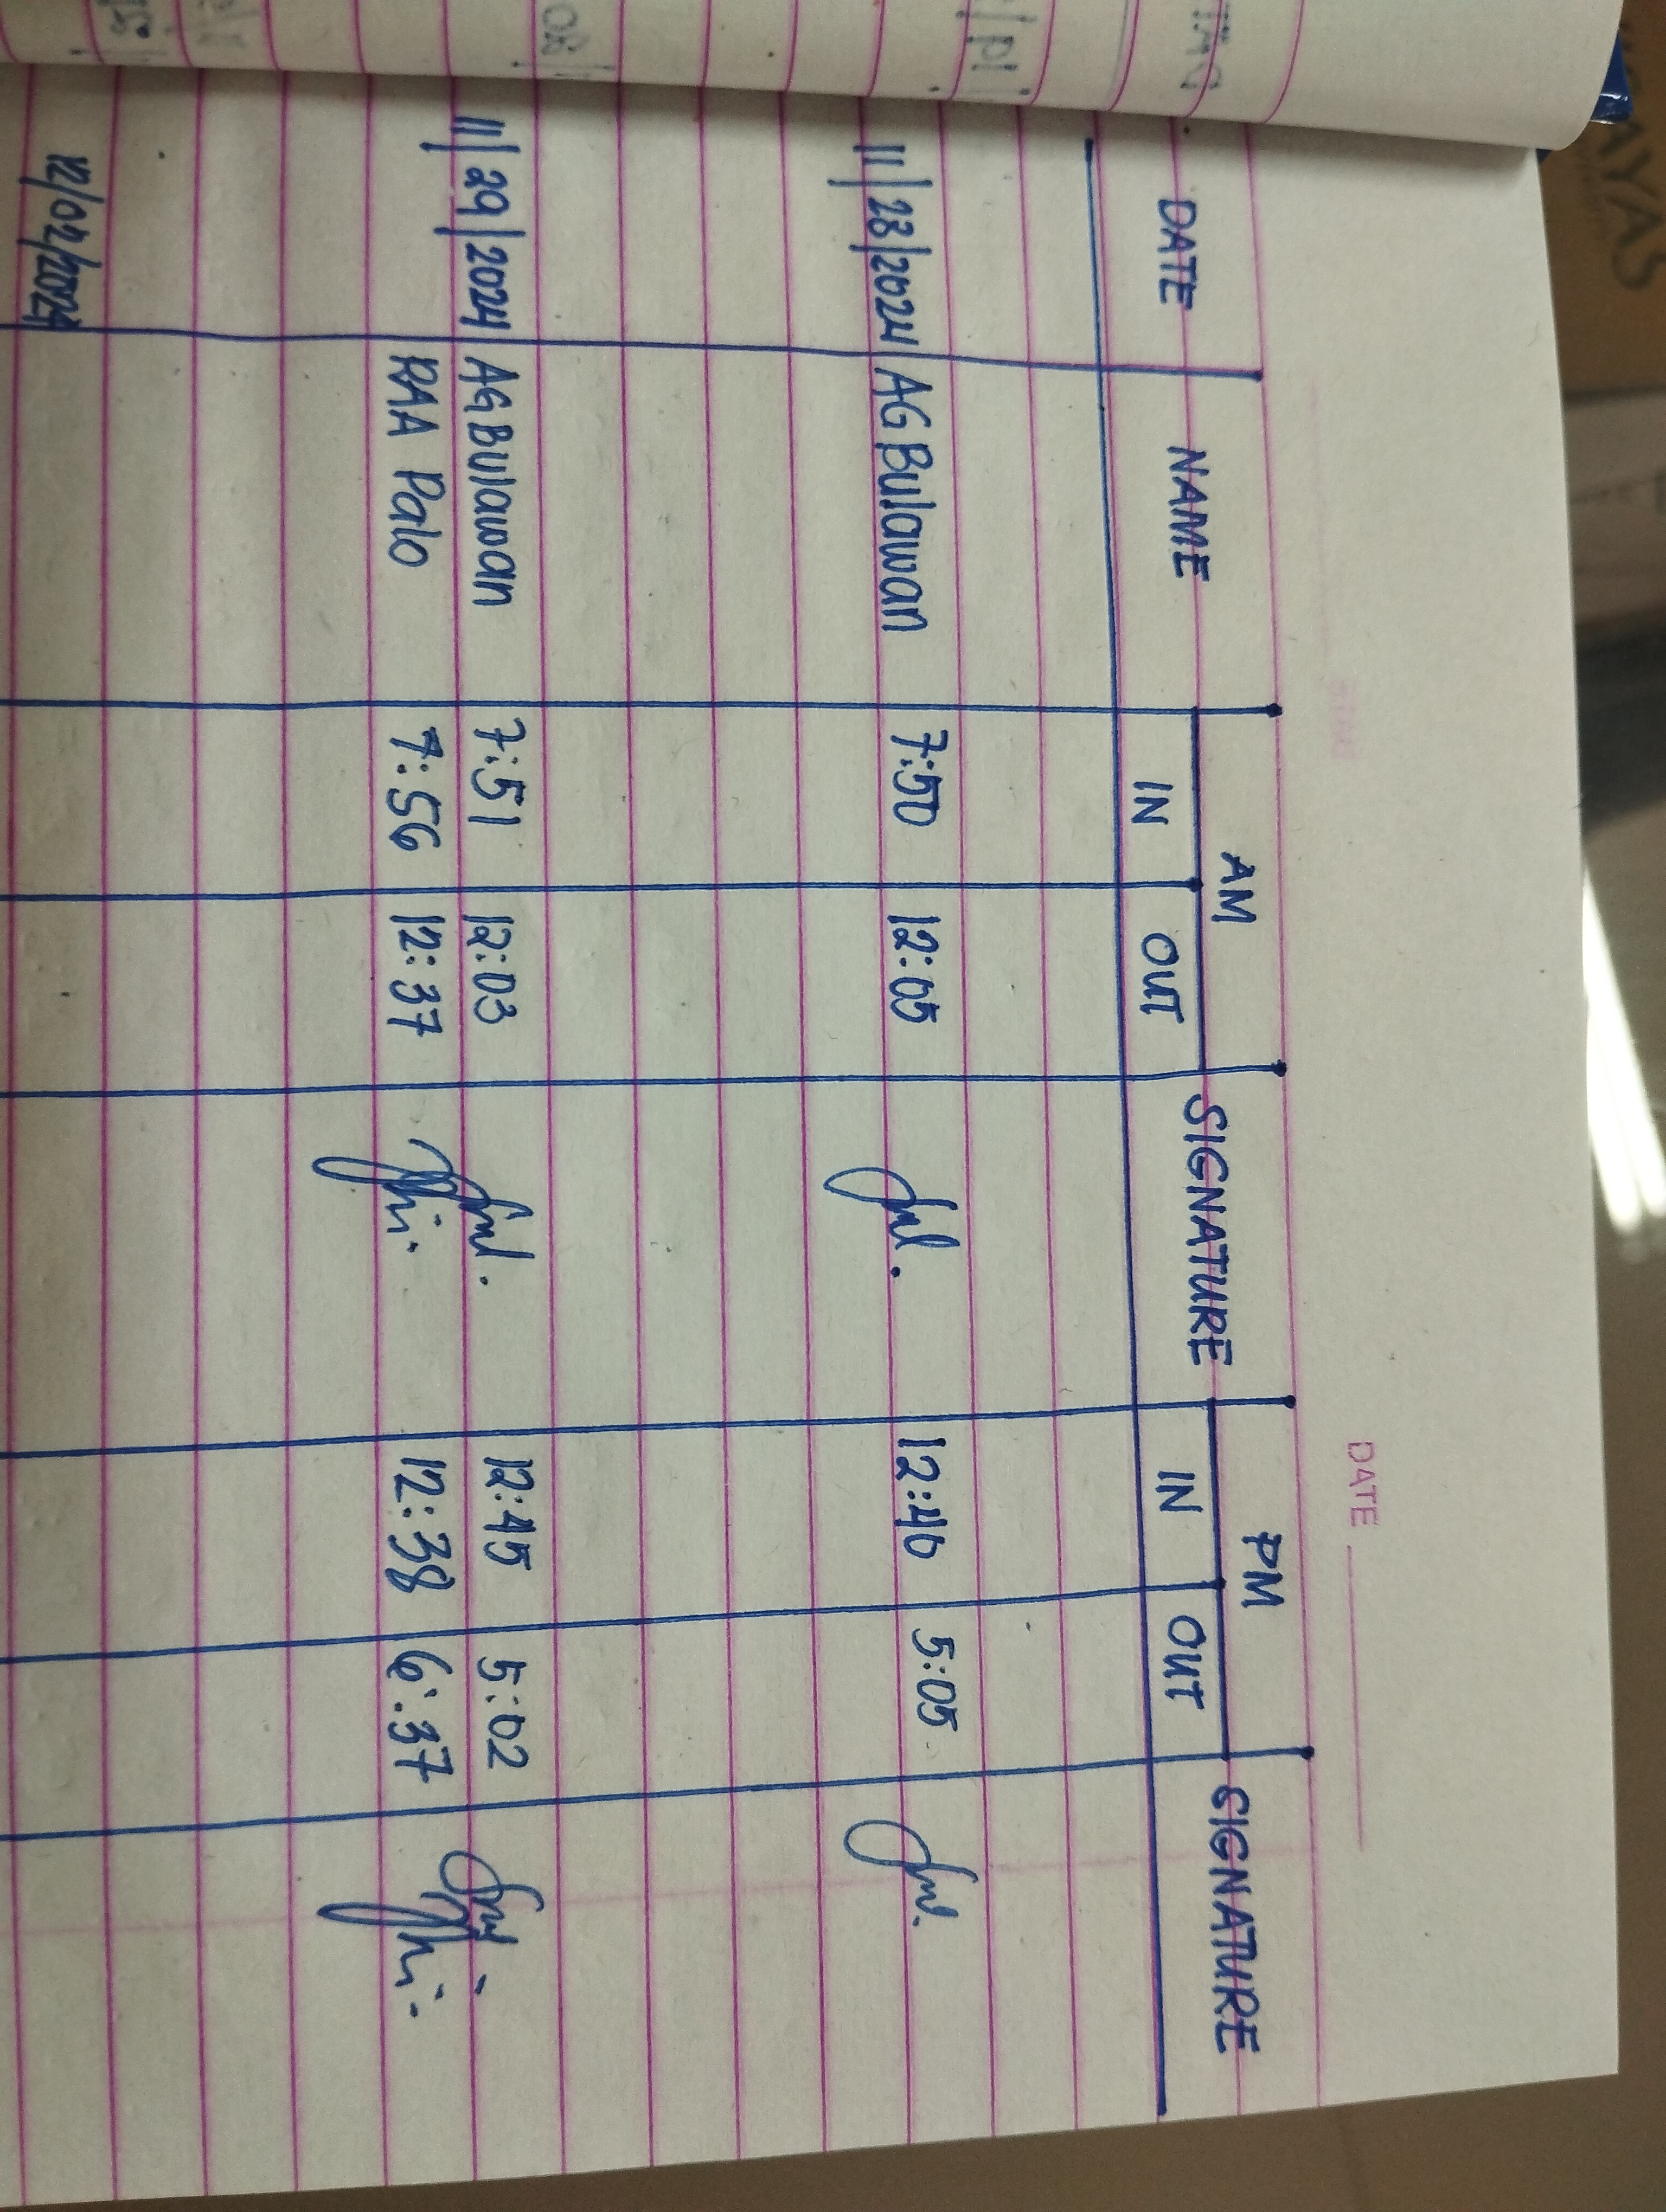 DATE
AM PM
DATE NAME IN OUT SIGNATURE IN OUT SIGNATURE
11/28/2024 AG Bulawan 7:50 12:05 12:40 5:05
11/29/2024 AG Bulawan 7:51 12:03 12:45 5:02
RAA Palo 7:56 12:37 12:38 6:37
12/02/2024